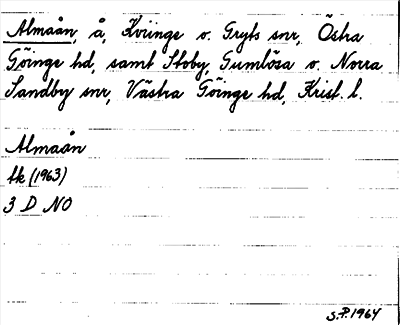 Almaån, å, Kviinge o. Gryts snr, Östra
Göinge hd, samt Stoby, Gumlösa o. Norra
Sandby snr, Västra Göinge hd, Krist. l.
Almaån
tk (1963)
3 D NO
S.P. 1964